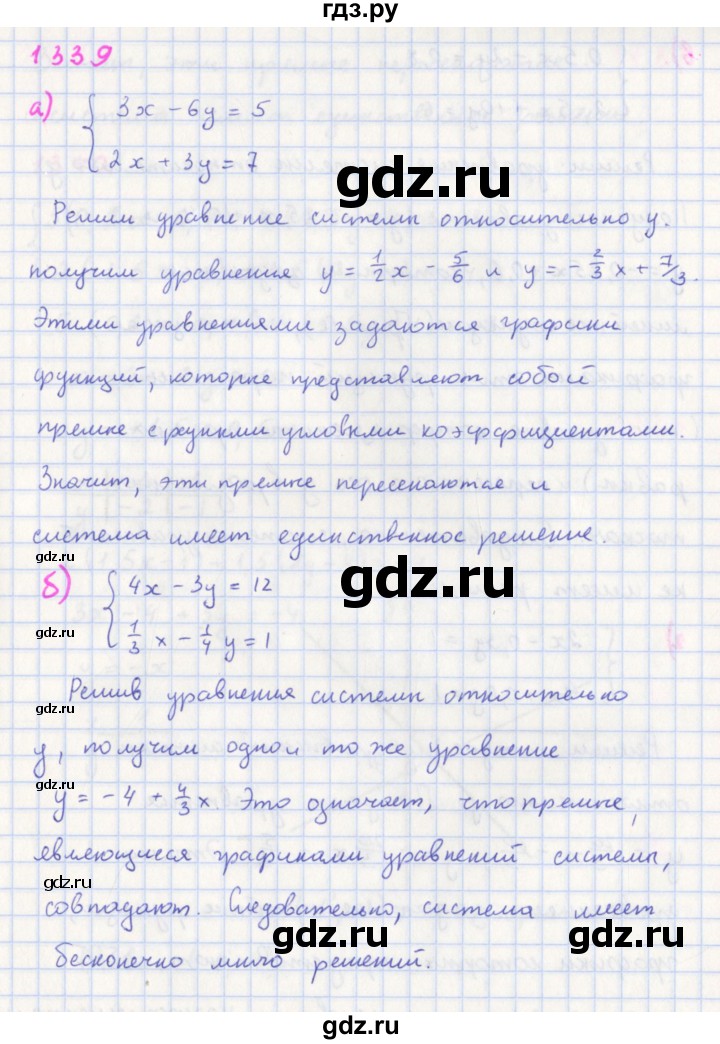 гдз.ру
1339
а) { 3x - 6y = 5
2x + 3y = 7
Решим уравнение системы относительно y.
получим уравнения y = 1/2 x - 5/6 и y = - 2/3 x + 7/3.
Этими уравнениями задаются графики
функций, которые представляют собой
прямые с разными угловыми коэффициентами.
Значит, эти прямые пересекаются и
система имеет единственное решение.
gdz.ru
б) { 4x - 3y = 12
gdz.ru
1/3 x - 1/4 y = 1
gdz.ru
Решив уравнения системы относительно
y, получим одно и то же уравнение
y = -4 + 4/3 x Это означает, что прямые,
являющиеся графиками уравнений системы,
gdz.ru
совпадают. Следовательно, система имеет
gdz.ru
gdz.ru
бесконечно много решений.
gdz.ru